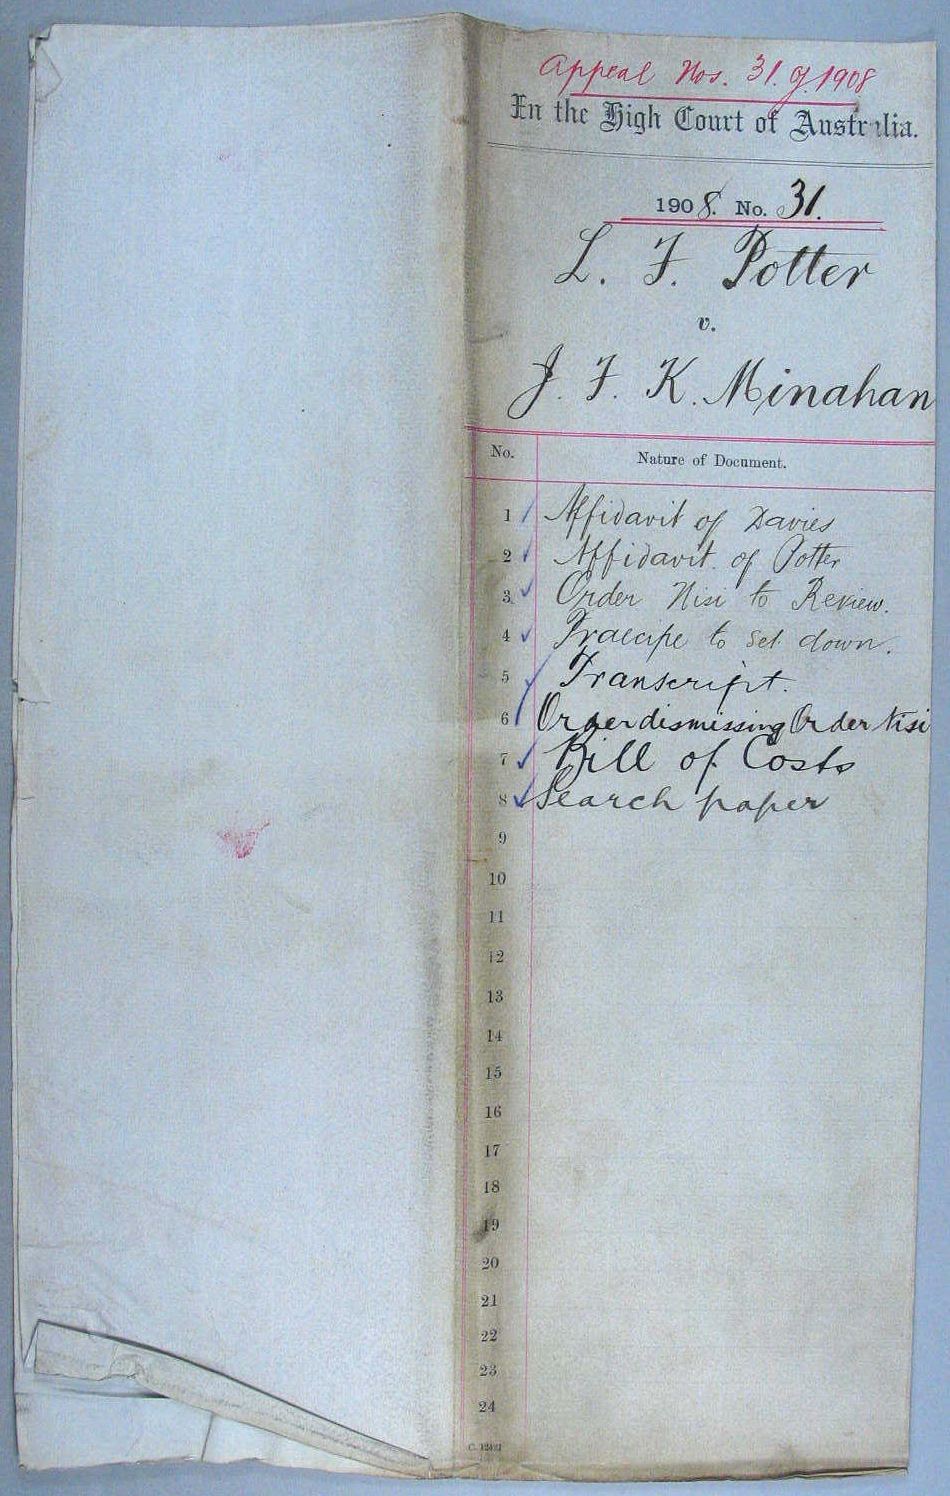 Appeal Nos. 31 of 1908
In the High Court of Australia.
1908. No. 31.
L. F. Potter
v.
J. F. K. Minahan
No. Nature of Document.
1 Affidavit of Davies
2 Affidavit of Potter
3 Order Nisi to Review.
4 Praecipe to set down.
5 Transcript.
6 Order dismissing Order Nisi
7 Bill of Costs
8 Search paper
9
10
11
12
13
14
15
16
17
18
19
20
21
22
23
24